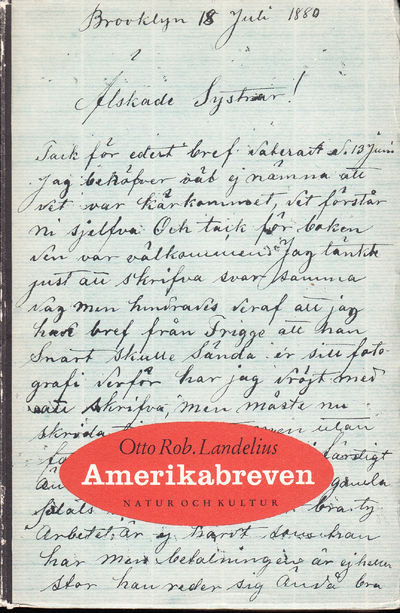 Brooklyn 18 Juli 1880
Älskade Systrar!
Tack för edert bref dateradt d. 13 Juni
Jag behöfver väl ej nämna att
det var kärkommet, det förstår
ni sjelfva Och tack för boken
den var välkommen Jag tänkte
just att skrifva svar samma
dag men hindrades deraf att jag
hade bref från Frigge att han
snart skulle sända er sitt foto
grafi derför har jag dröjt med
att skrifva, men måste nu
men utan
Otto Rob. Landelius
Amerikabreven
NATUR OCH KULTUR
gamla
bra ty
Arbetet är ej hardt som han
har men betalningen är ej heller
stor han reder sig ändå bra